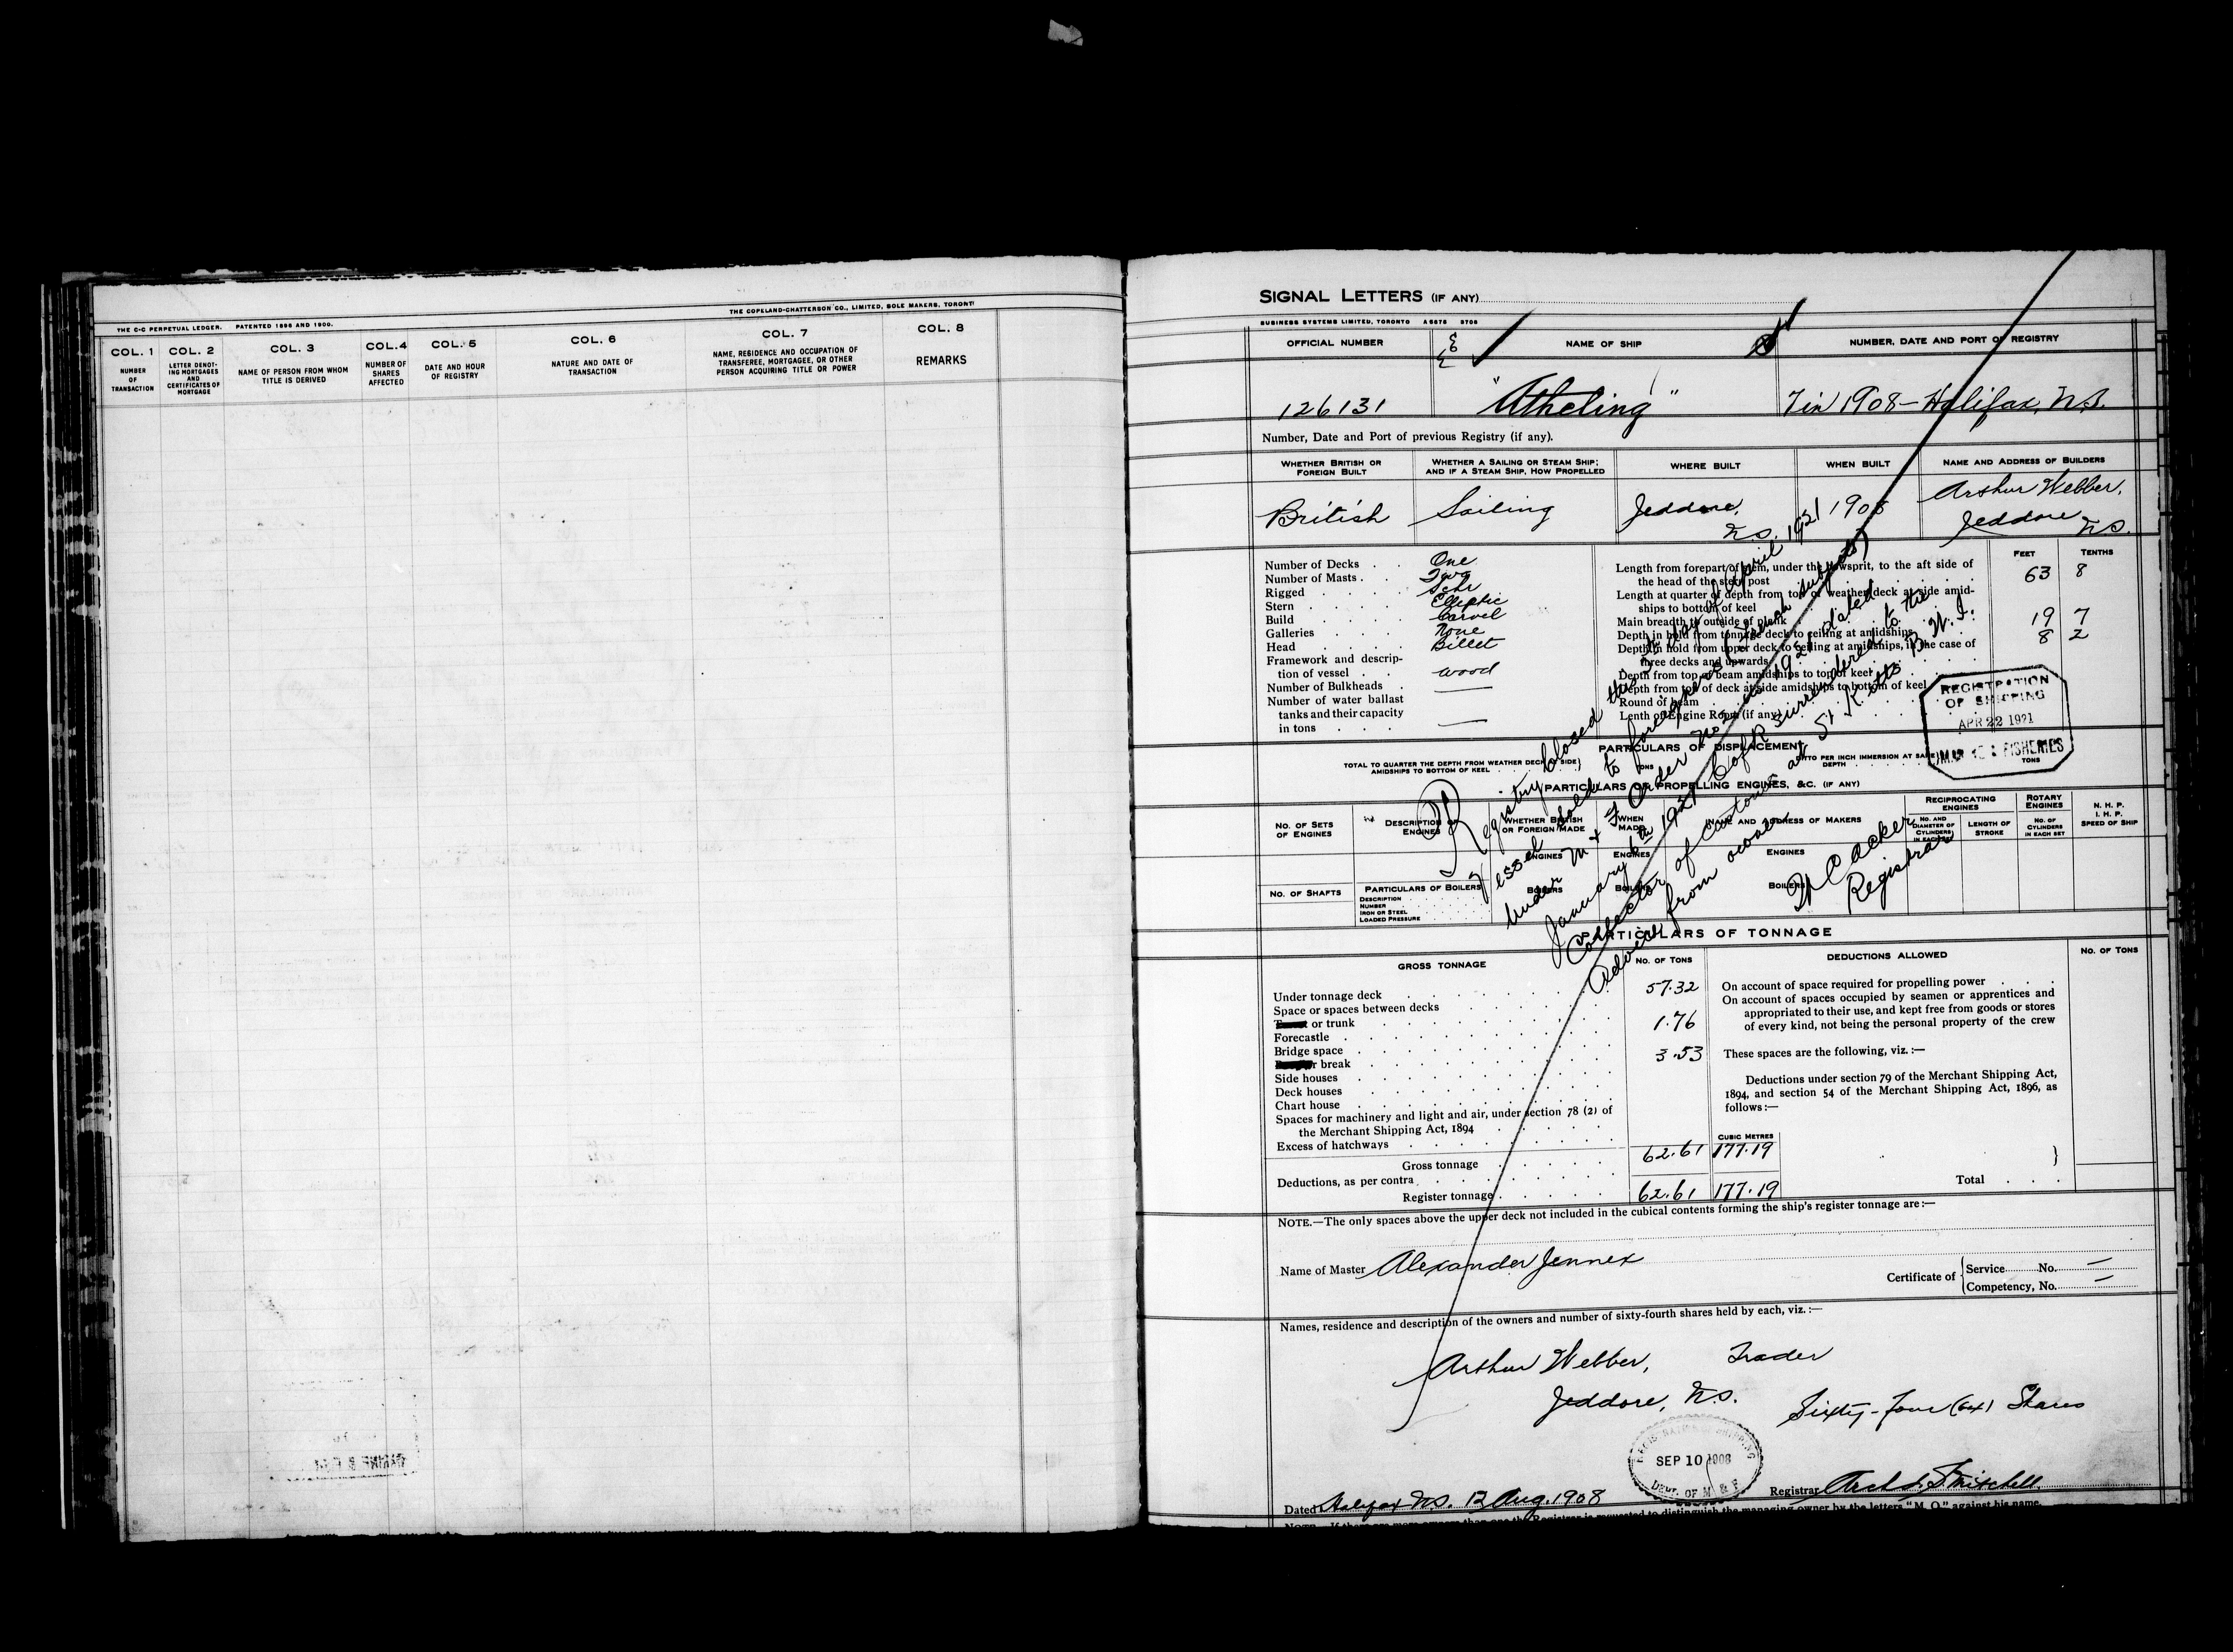 THE C-C PERPETUAL LEDGER. PATENTED 1896 AND 1900. THE COPELAND-CHATTERSON CO., LIMITED, SOLE MAKERS, TORONT
COL. 1 COL. 2 COL. 3 COL. 4 COL. 5 COL. 6 COL. 7 COL. 8
NUMBER OF TRANSACTION
LETTER DENOTING MORTGAGES AND CERTIFICATES OF MORTGAGE
NAME OF PERSON FROM WHOM TITLE IS DERIVED
NUMBER OF SHARES AFFECTED
DATE AND HOUR OF REGISTRY
NATURE AND DATE OF TRANSACTION
NAME, RESIDENCE AND OCCUPATION OF TRANSFEREE, MORTGAGEE, OR OTHER PERSON ACQUIRING TITLE OR POWER
REMARKS
SIGNAL LETTERS (IF ANY)
BUSINESS SYSTEMS LIMITED, TORONTO
OFFICIAL NUMBER NAME OF SHIP NUMBER, DATE AND PORT OF REGISTRY
126131 "Atheling" 7 in 1908 - Halifax, N.S.
Number, Date and Port of previous Registry (if any).
WHETHER BRITISH OR FOREIGN BUILT
WHETHER A SAILING OR STEAM SHIP; AND IF A STEAM SHIP, HOW PROPELLED
WHERE BUILT WHEN BUILT NAME AND ADDRESS OF BUILDERS
British Sailing Jeddore, N.S. 1908 Arthur Webber, Jeddore N.S.
Number of Decks One
Number of Masts Two
Rigged Schr
Stern Elliptic
Build Carvel
Galleries None
Head Billet
Framework and description of vessel wood
Number of Bulkheads —
Number of water ballast tanks and their capacity in tons —
FEET TENTHS
Length from forepart of stem, under the bowsprit, to the aft side of the head of the stern post 63 8
Length at quarter of depth from top of weather deck at side amidships to bottom of keel
Main breadth to outside of plank 19 7
Depth in hold from tonnage deck to ceiling at amidships 8 2
Depth in hold from upper deck to ceiling at amidships, in the case of three decks and upwards
Depth from top of beam amidships to top of keel
Depth from top of deck at side amidships to bottom of keel
Round of beam
Lenth of Engine Room (if any)
Registry closed this day of April 1921
Vessel sold to foreigners (French subjects)
Under M & F Order No dated
January 6th 1921 C of R surrendered to the
Collector of Customs at St Kitts B.W.I.
Advice from owner
Registrar
REGISTRATION OF SHIPPING
APR 22 1921
FISHERIES
PARTICULARS OF DISPLACEMENT
TOTAL TO QUARTER THE DEPTH FROM WEATHER DECK AT SIDE AMIDSHIPS TO BOTTOM OF KEEL TONS
DITTO PER INCH IMMERSION AT SAME DEPTH TONS
PARTICULARS OF PROPELLING ENGINES, &C. (IF ANY)
NO. OF SETS OF ENGINES
DESCRIPTION OF ENGINES
WHETHER BRITISH OR FOREIGN MADE
WHEN MADE
NAME AND ADDRESS OF MAKERS
RECIPROCATING ENGINES
NO. AND DIAMETER OF CYLINDERS IN EACH SET
LENGTH OF STROKE
ROTARY ENGINES
NO. OF CYLINDERS IN EACH SET
N. H. P.
I. H. P.
SPEED OF SHIP
ENGINES ENGINES ENGINES
NO. OF SHAFTS
PARTICULARS OF BOILERS
DESCRIPTION
NUMBER
IRON OR STEEL
LOADED PRESSURE
BOILERS BOILERS BOILERS
PARTICULARS OF TONNAGE
GROSS TONNAGE NO. OF TONS DEDUCTIONS ALLOWED NO. OF TONS
Under tonnage deck 57.32
Space or spaces between decks
or trunk 1.76
Forecastle
Bridge space
break 3.53
Side houses
Deck houses
Chart house
Spaces for machinery and light and air, under section 78 (2) of the Merchant Shipping Act, 1894
Excess of hatchways
CUBIC METRES
Gross tonnage 62.61 177.19
Deductions, as per contra
Register tonnage 62.61 177.19
On account of space required for propelling power
On account of spaces occupied by seamen or apprentices and appropriated to their use, and kept free from goods or stores of every kind, not being the personal property of the crew
These spaces are the following, viz.:—
Deductions under section 79 of the Merchant Shipping Act, 1894, and section 54 of the Merchant Shipping Act, 1896, as follows:—
Total
NOTE.—The only spaces above the upper deck not included in the cubical contents forming the ship's register tonnage are:—
Name of Master Alexander Jennex
Certificate of Service No. —
Competency, No. —
Names, residence and description of the owners and number of sixty-fourth shares held by each, viz.:—
Arthur Webber, Trader
Jeddore, N.S. Sixty-four (64) Shares
REGISTRATION OF SHIPPING
SEP 10 1908
DEPT. OF M & F
Dated Halifax N.S. 12 Aug. 1908 Registrar Mitchell.
NOTE.—If there are more owners than one the Registrar is requested to distinguish the managing owner by the letters "M. O." against his name.